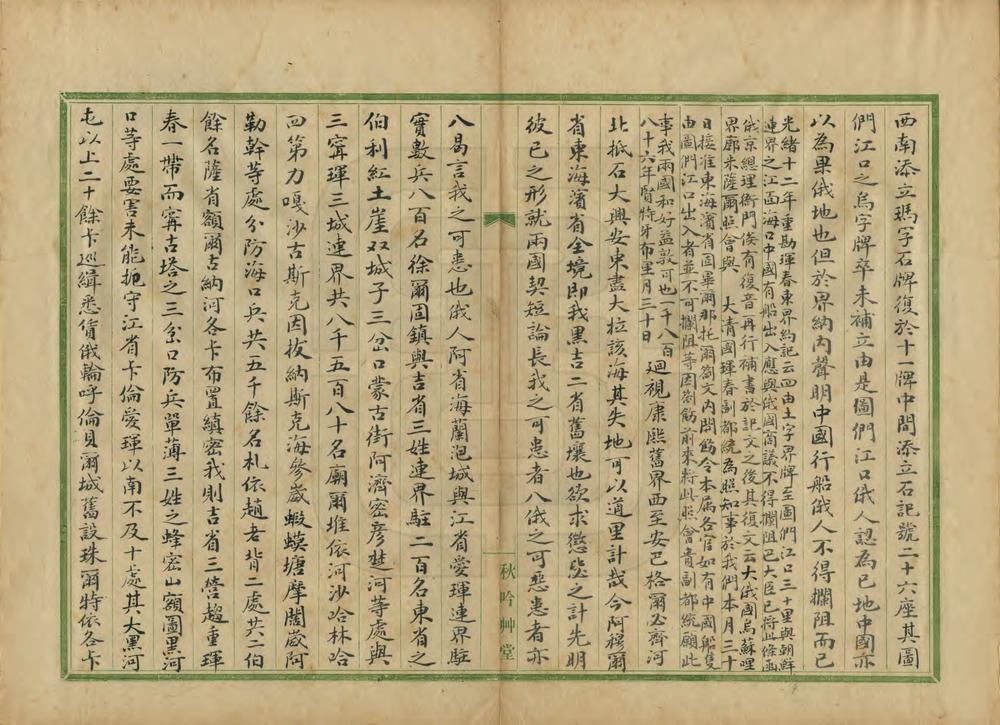 西南添立瑪字石牌復於十一牌中間添立石記號二十六座其圖
們江口之烏字牌卒未補立由是圖們江口俄人認為已地中國亦
以為果俄地也但於界約內聲明中國行船俄人不得攔阻而已
光緒十二年重勘琿春東界約記云四由土字界牌至圖們江口三十里與朝鮮
連界之江面海口中國有船出入應與俄國商議不得攔阻已大臣已將此條函
俄京總理衙門俟有復音再行補書於記文之後其復文云大俄國烏蘇哩
界廓米薩爾照會與　大清國琿春副都統為照知事於我們本月三十
日接准東海濱省固畢爾那托爾劄文內開飭令本屬各官如有中國船隻
由圖們江口出入者並不可攔阻等因劄飭前來特此照會貴副都統願此
事我兩國和好益敦可也一千八百
八十六年賢特牙布里月三十日　迴視康熙舊界西至安巴格爾必齊河
北抵石大興安東盡大拉該海其失地可以道里計哉今阿穆爾
省東海濱省全境即我黑吉二省舊壤也欲求懲毖之計先明
彼已之形就兩國契短論長我之可患者八俄之可惡患者亦
秋吟艸堂
八曷言我之可患也俄人阿省海蘭泡城與江省愛琿連界駐
實數兵八百名徐爾固鎮與吉省三姓連界駐二百名東省之
伯利紅土崖双城子三岔口蒙古街阿濟密彥楚河等處與
三甯琿三城連界共八千五百八十名廟爾堆依河沙哈林哈
四第力嘎沙古斯克因拔納斯克海參崴蝦蟆塘摩闊崴阿
勒幹等處分防海口兵共五千餘名札依趙老背二處共二伯
餘名薩省額爾古納河各卡布置縝密我則吉省三營趨重琿
春一帶而甯古塔之三岔口防兵單薄三姓之蜂密山額圖黑河
口等處要害未能扼守江省卡倫愛琿以南不及十處其大黑河
屯以上二十餘卡巡緝悉賃俄輪呼倫貝爾城舊設珠爾特依各卡